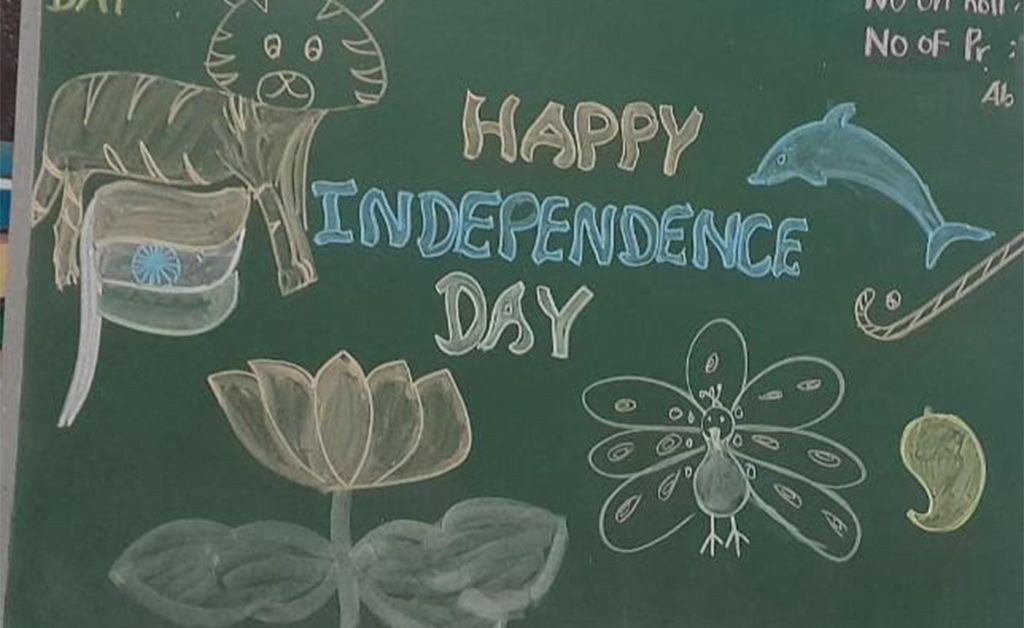 DAY
No OF Roll :
No OF Pr :
Ab
HAPPY
INDEPENDENCE
DAY